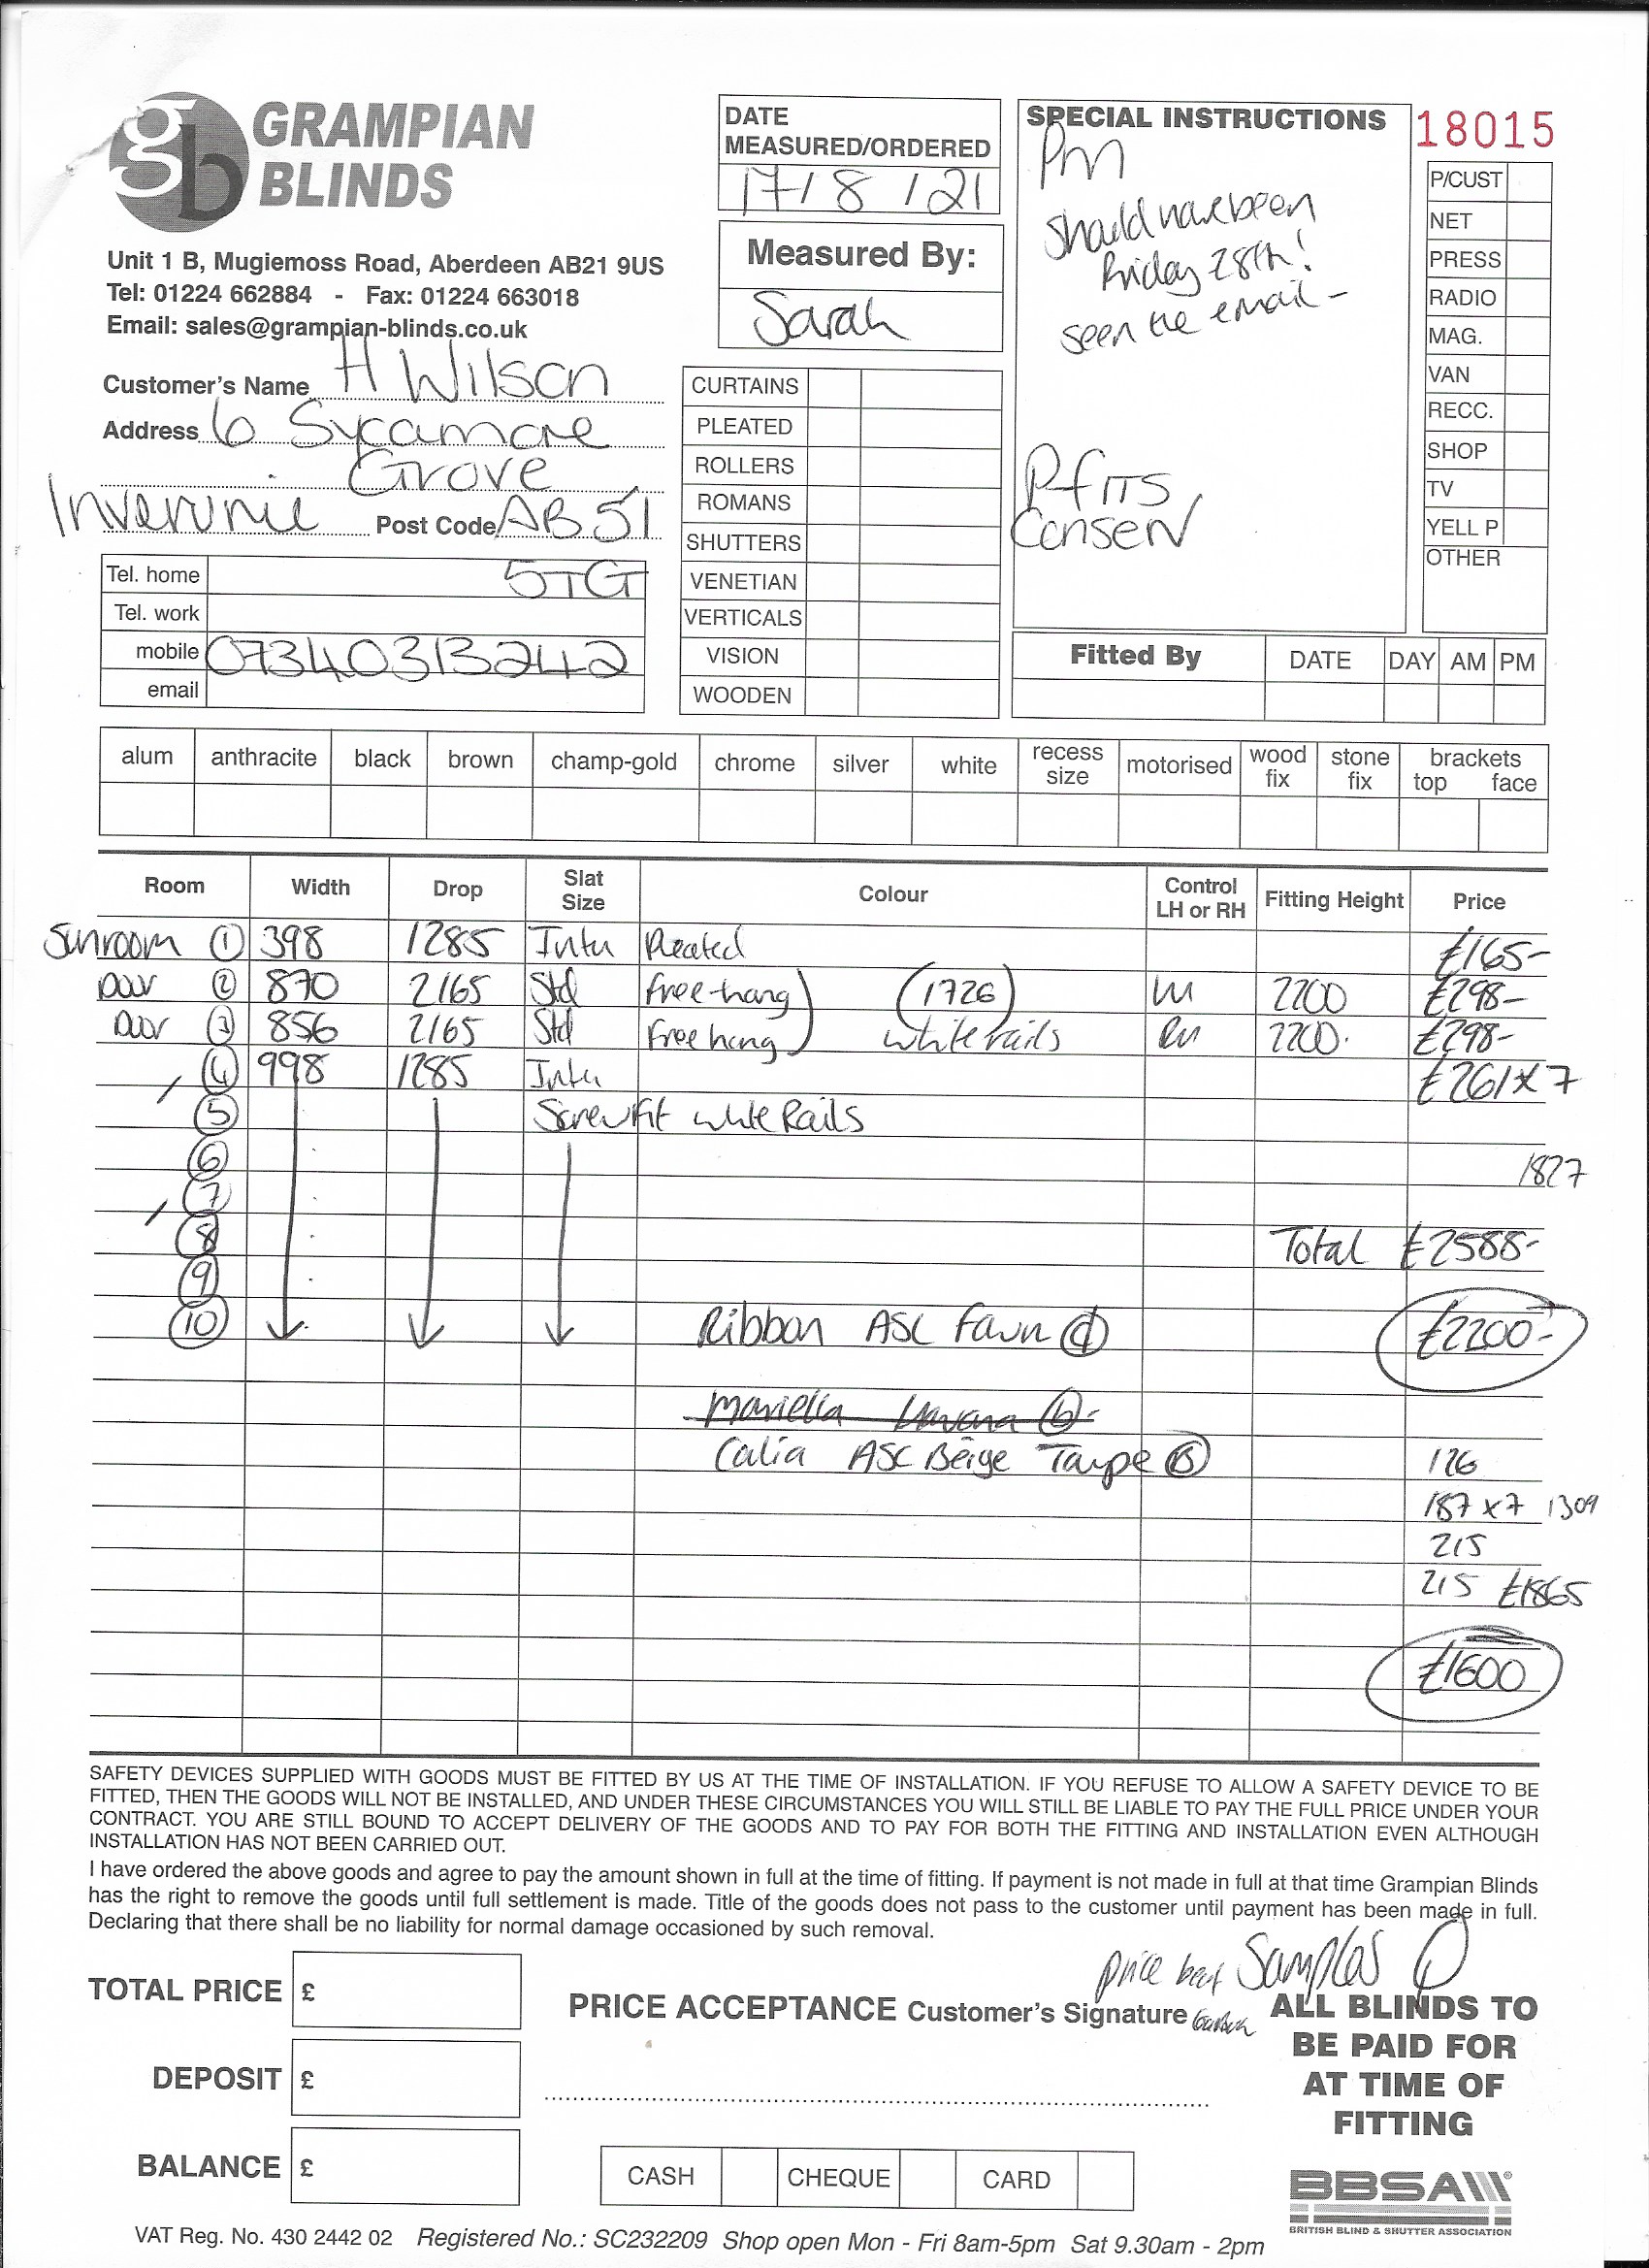 GRAMPIAN
BLINDS
Unit 1 B, Mugiemoss Road, Aberdeen AB21 9US
Tel: 01224 662884 - Fax: 01224 663018
Email: sales@grampian-blinds.co.uk
Customer's Name H Wilson
Address 6 Sycamore
Grove
Inverurie Post Code AB51
Tel. home 5TG
Tel. work
mobile 07340313242
email
DATE
MEASURED/ORDERED
17/8/21
Measured By:
Sarah
CURTAINS
PLEATED
ROLLERS
ROMANS
SHUTTERS
VENETIAN
VERTICALS
VISION
WOODEN
SPECIAL INSTRUCTIONS
PM
Should have been
Friday 28th!
seen the email -
Pfits
Conserv
18015
P/CUST
NET
PRESS
RADIO
MAG.
VAN
RECC.
SHOP
TV
YELL P
OTHER
Fitted By DATE DAY AM PM
alum anthracite black brown champ-gold chrome silver white recess size motorised wood fix stone fix brackets top face
Room Width Drop Slat Size Colour Control LH or RH Fitting Height Price
Sunroom 1 398 1285 Intu Pleated £165-
Door 2 870 2165 Std free-hang (1726) LH 2200 £298-
Door 3 856 2165 Std Free hang white rails RH 2200. £298-
4 998 1285 Intu £261 x 7
5 Screwfit white Rails
6 1827
7
8 Total £2588-
9
10 Ribbon ASC Fawn £2200-
Mariella
Calia ASC Beige Taupe B 126
187 x 7 1309
215
215 £1865
£1600
SAFETY DEVICES SUPPLIED WITH GOODS MUST BE FITTED BY US AT THE TIME OF INSTALLATION. IF YOU REFUSE TO ALLOW A SAFETY DEVICE TO BE
FITTED, THEN THE GOODS WILL NOT BE INSTALLED, AND UNDER THESE CIRCUMSTANCES YOU WILL STILL BE LIABLE TO PAY THE FULL PRICE UNDER YOUR
CONTRACT. YOU ARE STILL BOUND TO ACCEPT DELIVERY OF THE GOODS AND TO PAY FOR BOTH THE FITTING AND INSTALLATION EVEN ALTHOUGH
INSTALLATION HAS NOT BEEN CARRIED OUT.
I have ordered the above goods and agree to pay the amount shown in full at the time of fitting. If payment is not made in full at that time Grampian Blinds
has the right to remove the goods until full settlement is made. Title of the goods does not pass to the customer until payment has been made in full.
Declaring that there shall be no liability for normal damage occasioned by such removal.
price beat Samples
TOTAL PRICE £
DEPOSIT £
BALANCE £
PRICE ACCEPTANCE Customer's Signature
CASH CHEQUE CARD
ALL BLINDS TO
BE PAID FOR
AT TIME OF
FITTING
BBSA
BRITISH BLIND & SHUTTER ASSOCIATION
VAT Reg. No. 430 2442 02 Registered No.: SC232209 Shop open Mon - Fri 8am-5pm Sat 9.30am - 2pm